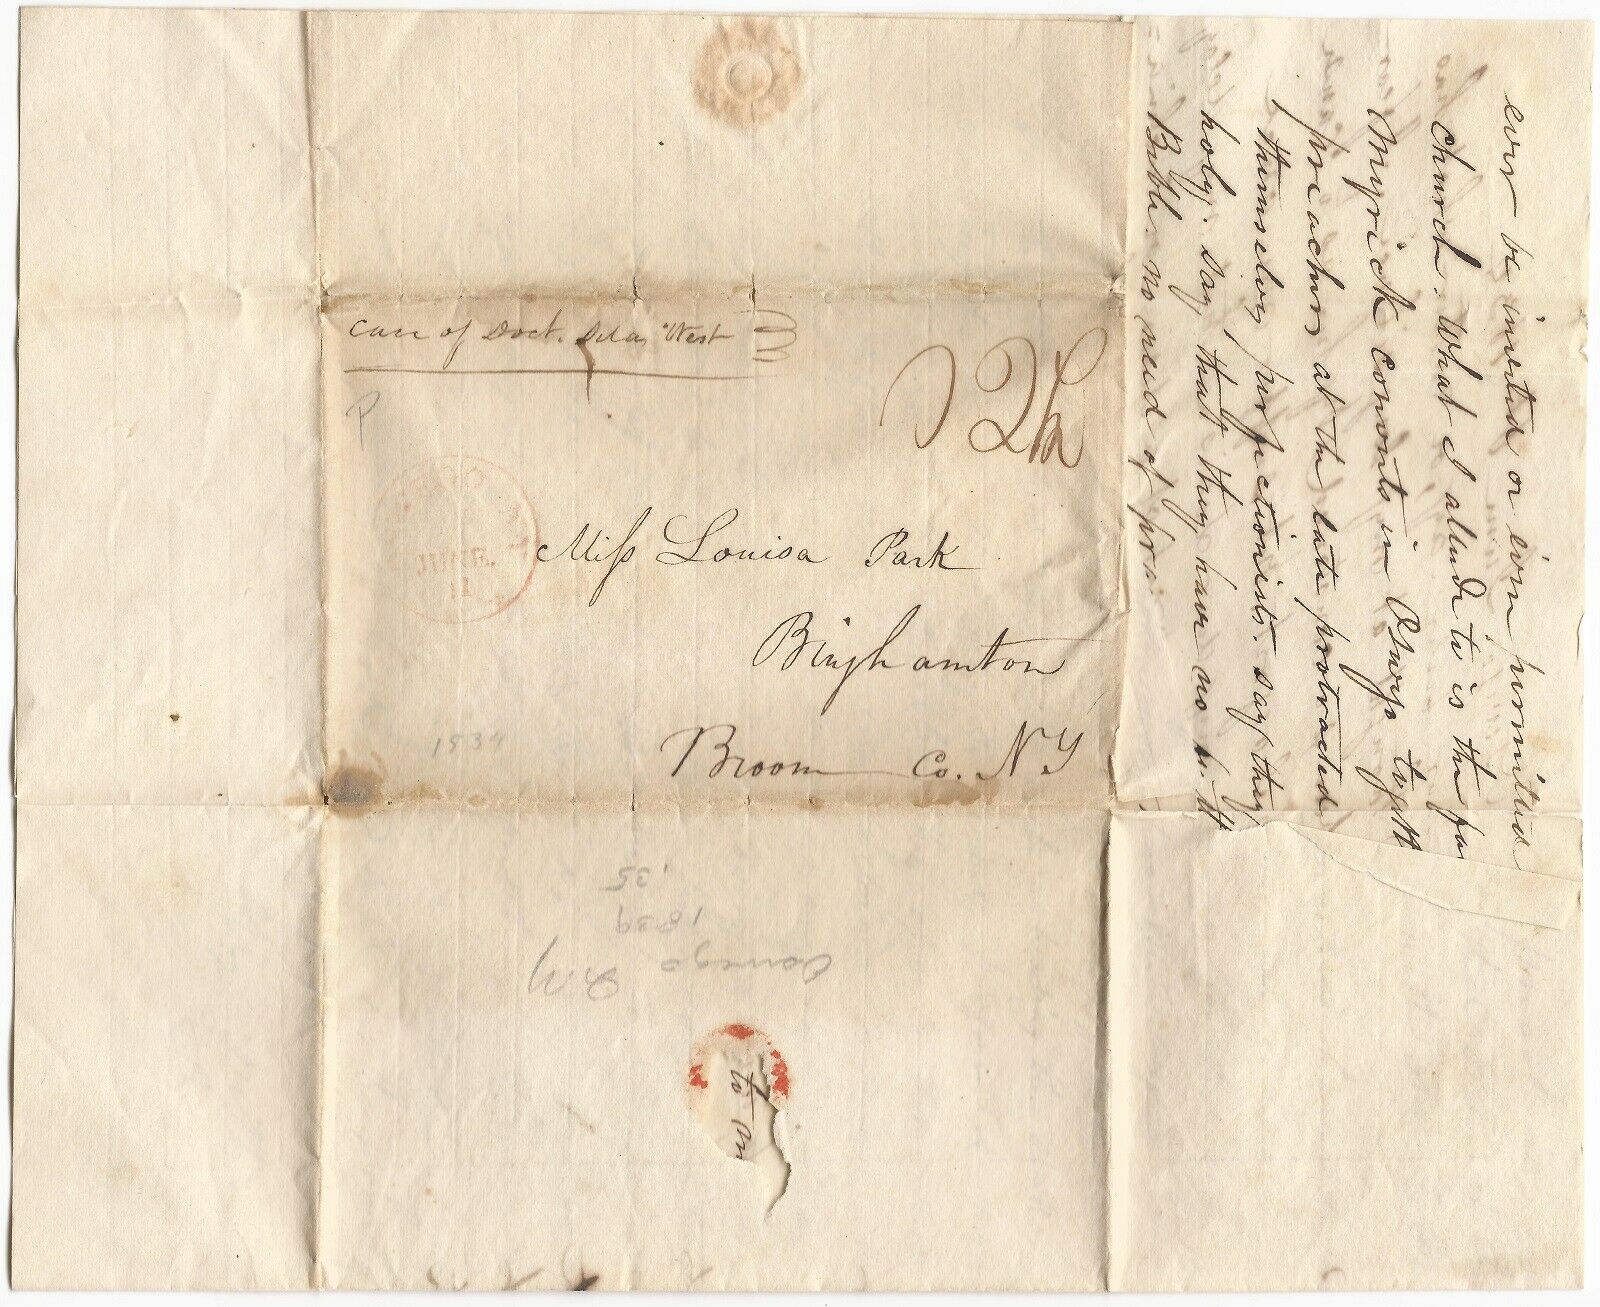 Care of Doct. Silas West
12½
P
OSWEGO
JUNE
11
Miss Louisa Park
Binghamton
Broom Co. N.Y
1839
.35
1839
Oswego
N.Y
to on
ever be invited or even permitted
church. What I allude to is the fa
Myrick converts in Oswego
preachers at the late protracted
themselves perfectionists. say they
holy. say that they have no
Bible. no need of pra